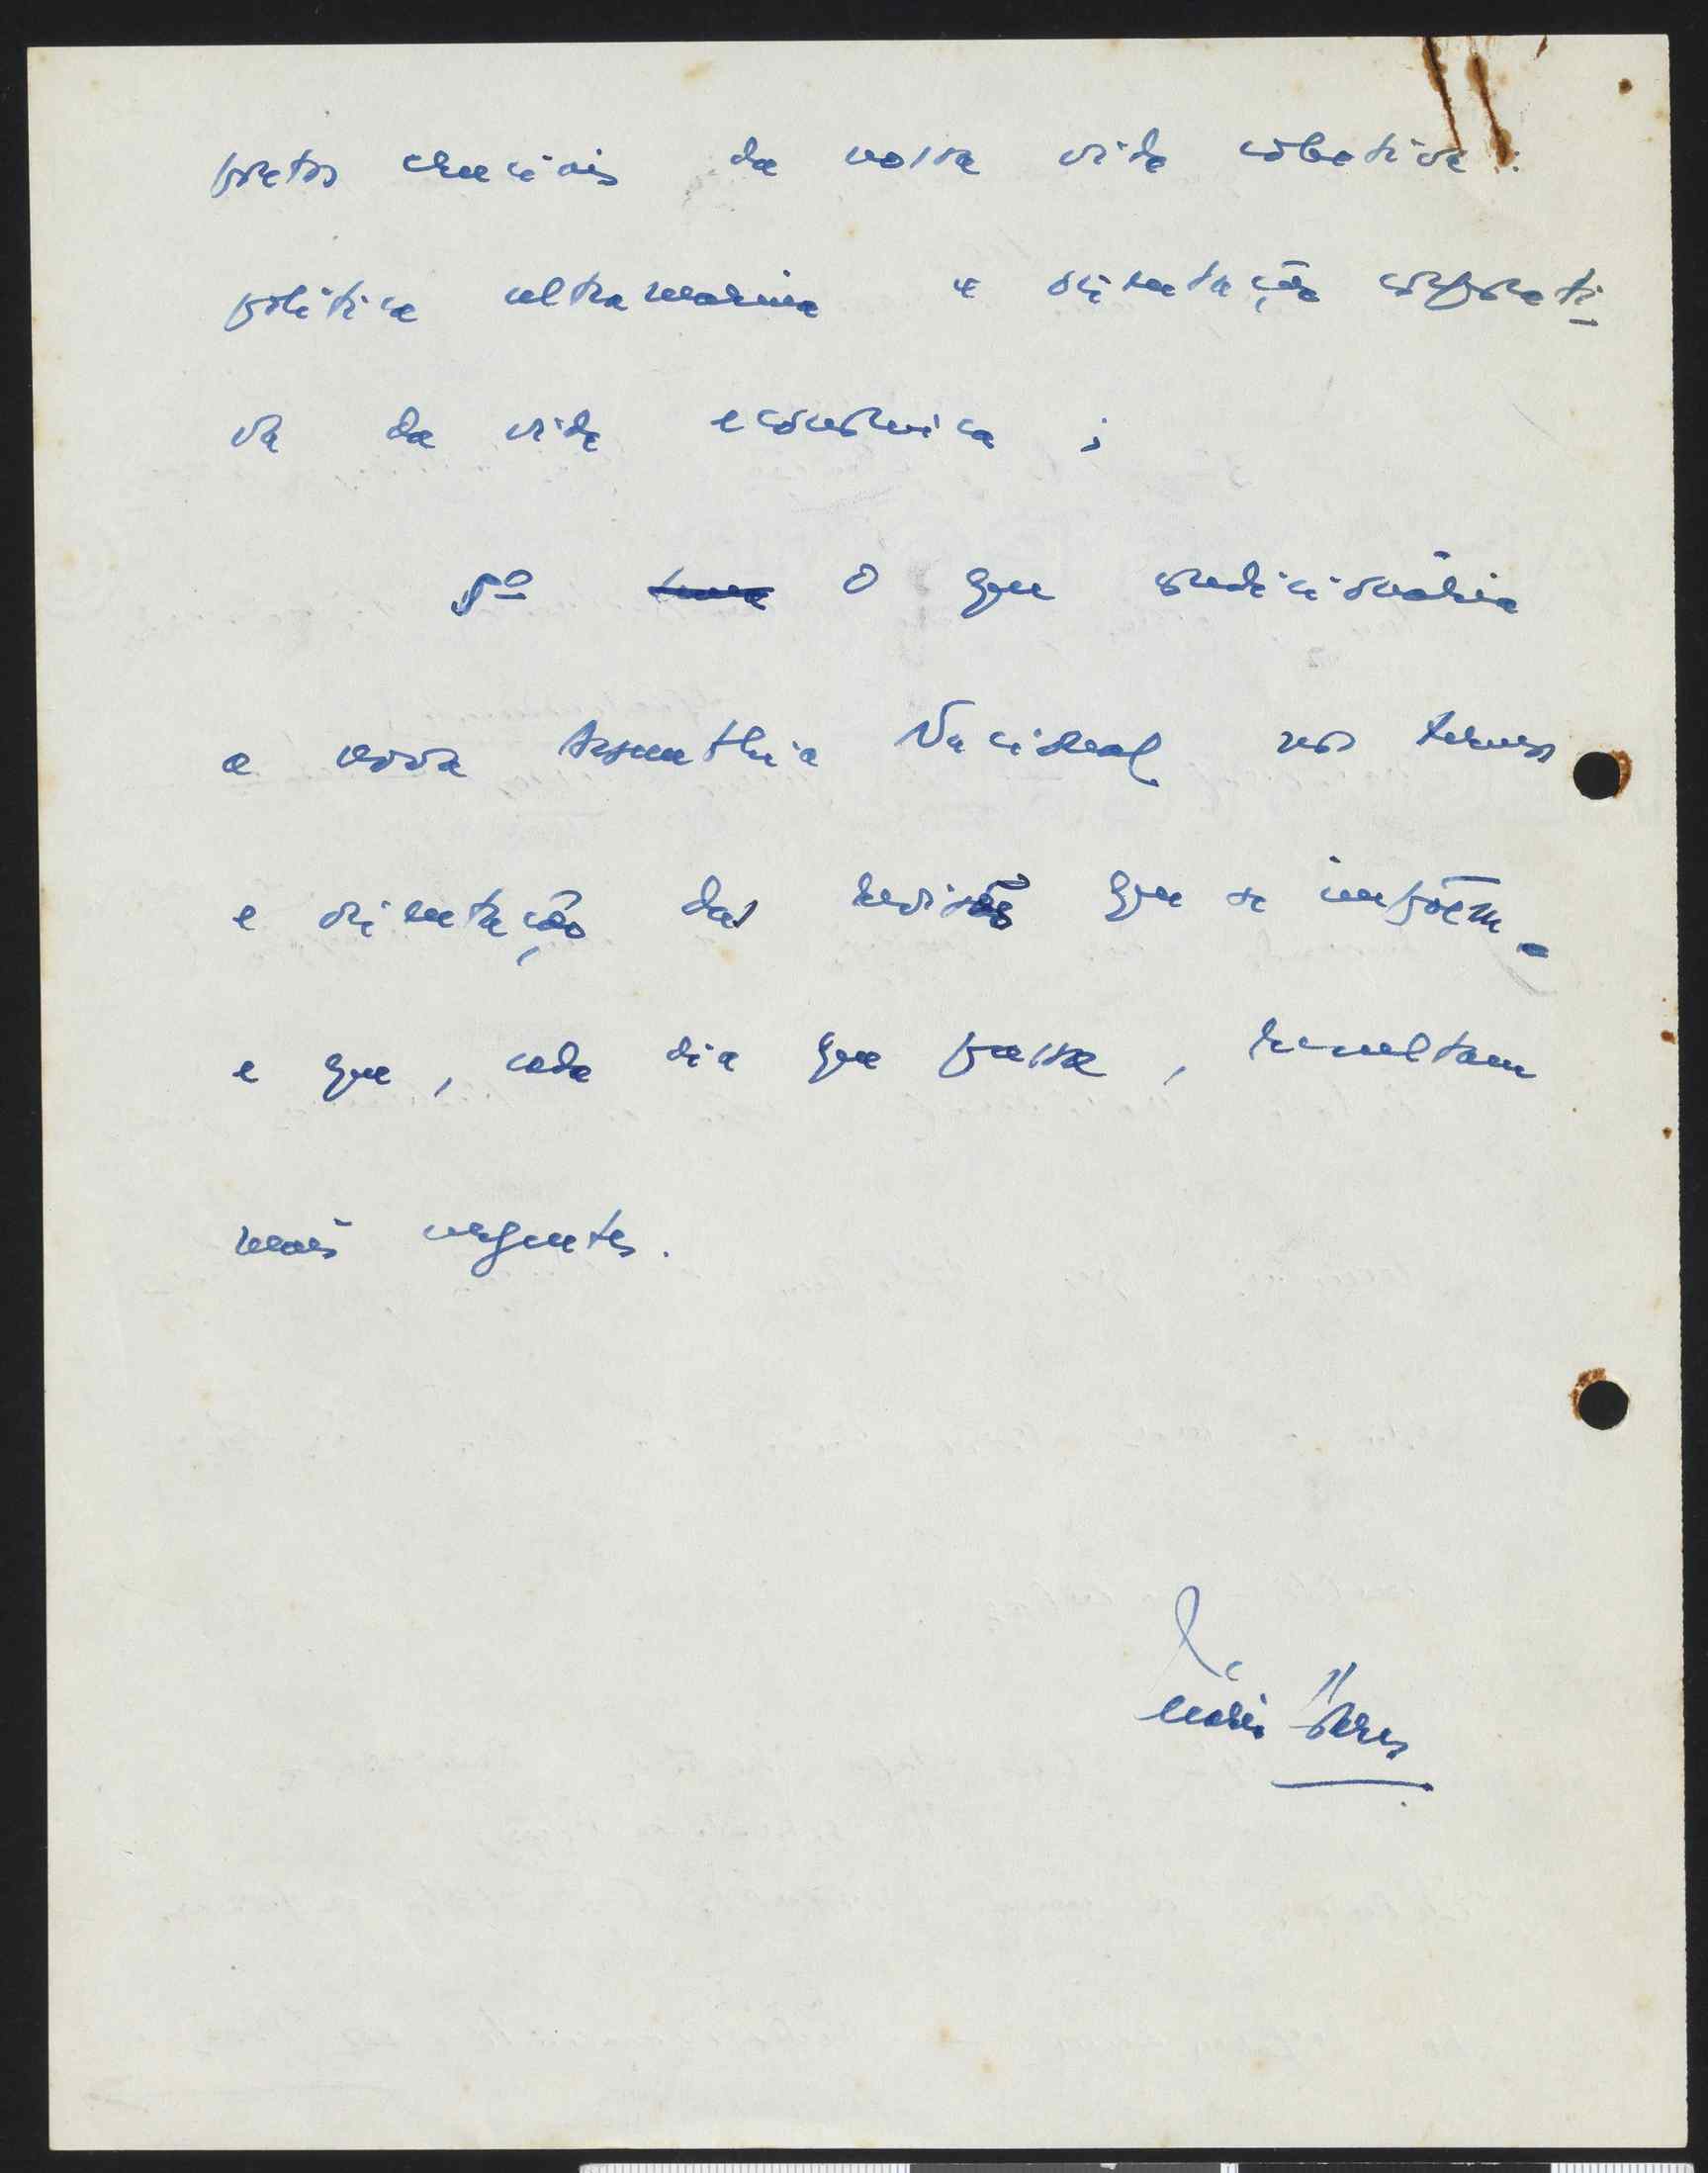 pontos cruciais da nossa vida colectiva:
política ultramarina e orientação corporati
va da vida económica;
5º O que condicionaria
a nova Assembleia Nacional nos termos
e orientação das revisões que se impõem
e que, cada dia que passa, resultam
mais urgentes.
Mário Soares